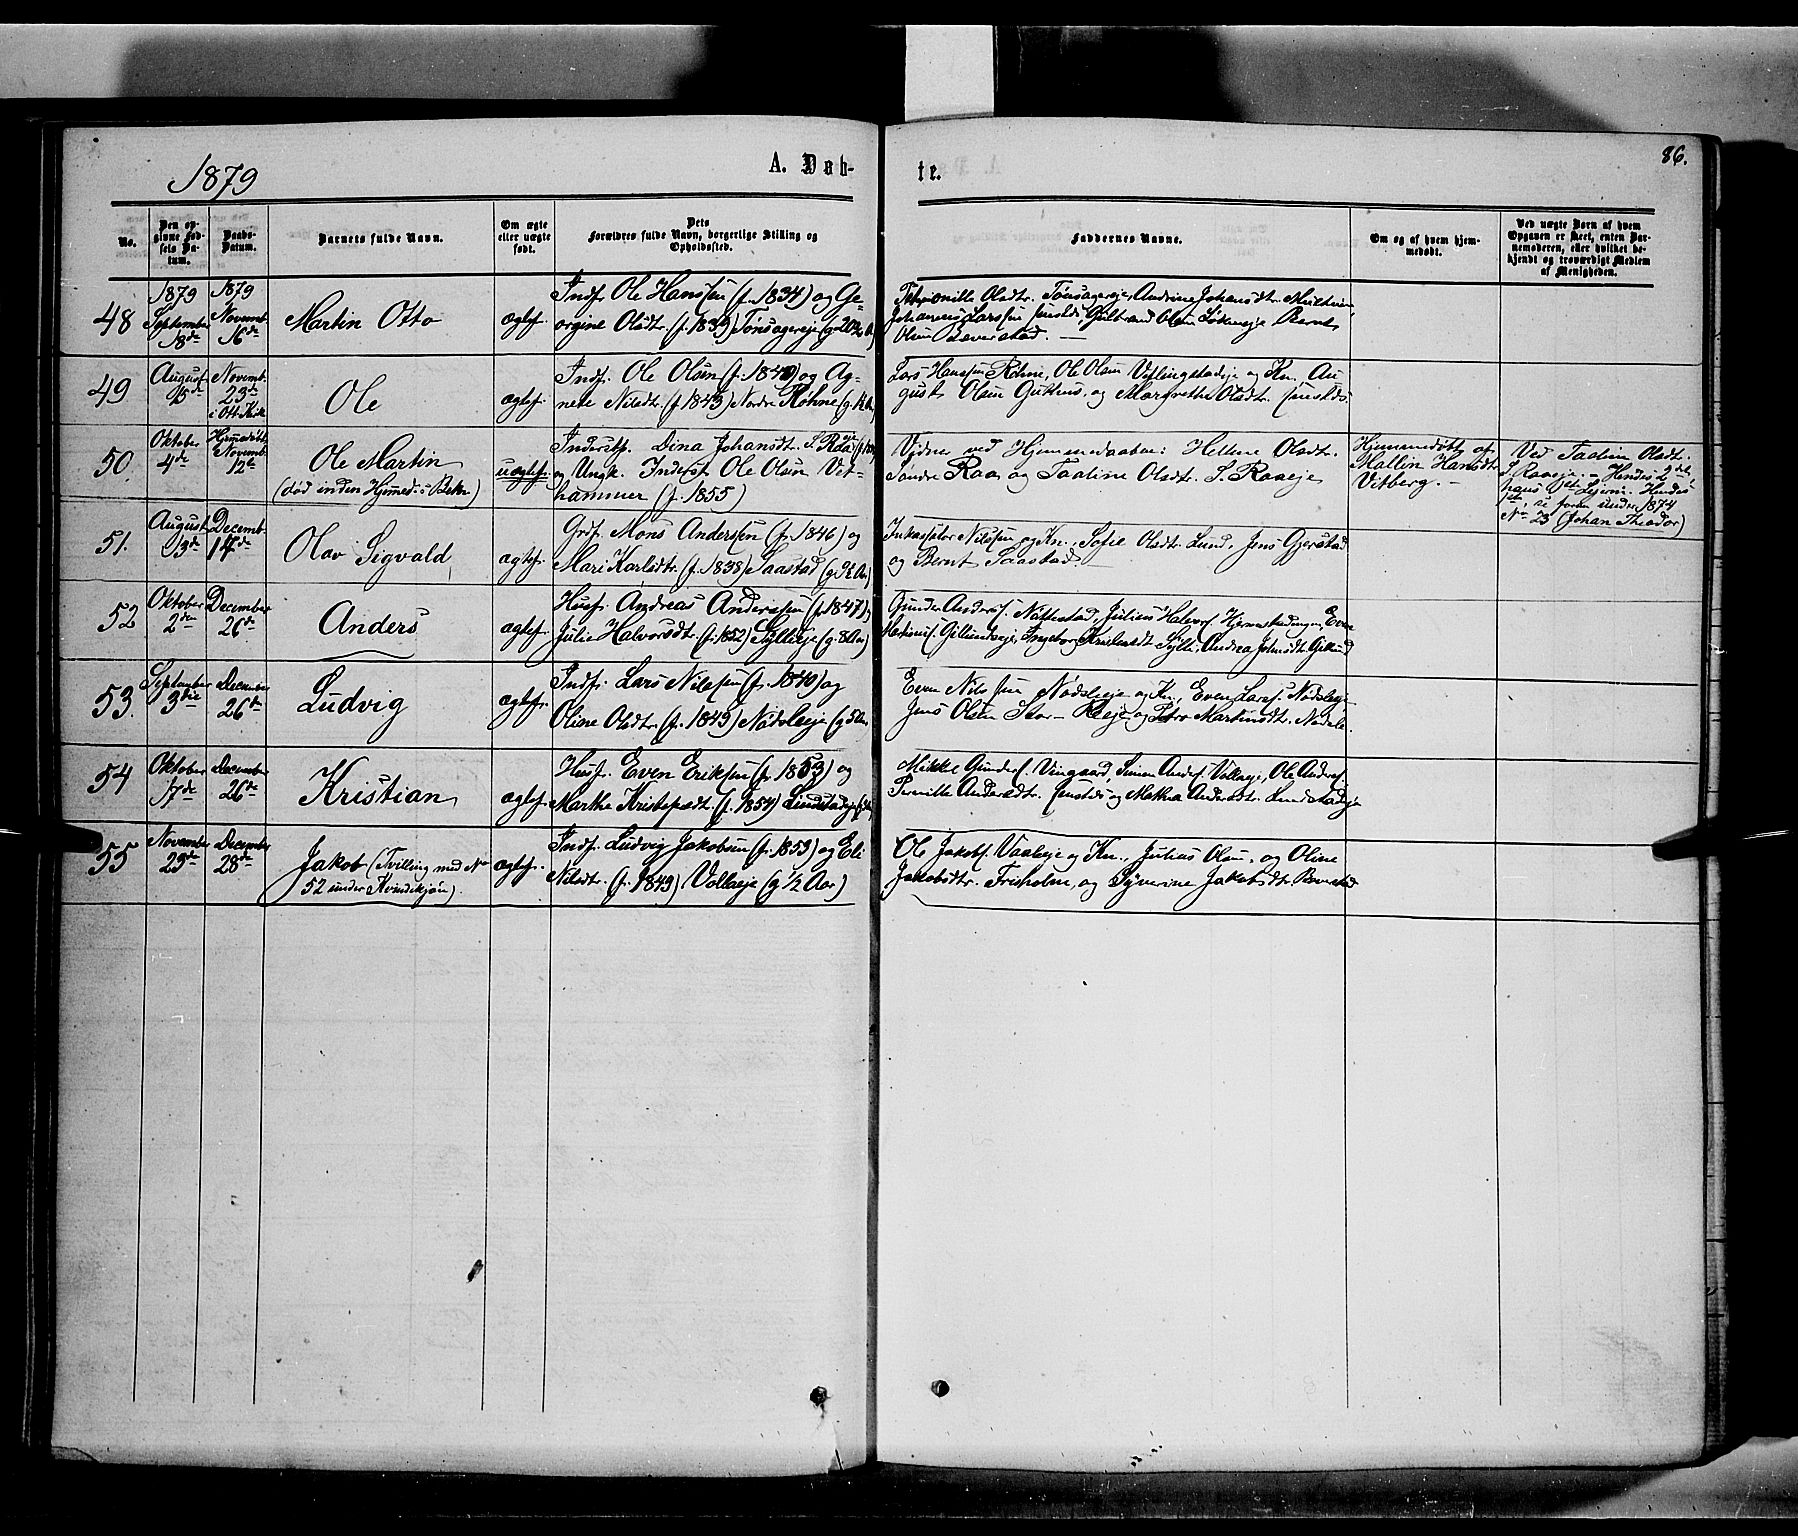 1879
A. Døb-
te.
86.
No.
Den op-
givne Fød-
sels Da-
tum.
Daabs-
Datum.
Barnets fulde Navn.
Om ægte
eller uægte
født.
Dets
Forældres fulde Navn, borgerlige Stilling og
Opholdssted.
Faddernes Navne.
Om og af hvem hjem-
medøbt.
Ved uægte Børn af hvem
Opgaven er skeet, enten Bar-
nemoderen, eller hvilket be-
kjendt og troværdigt Medlem
af Menigheden.
48
1879
September
18de
1879
Novemb.
16de
Martin Otto
ægtef.
Indf. Ole Hanssen (f. 1834) og Ge-
orgine Olsdtr. (f. 1839) Tønsagereje
Olsdtr. Tønsagereje, Andrine Johansdtr.
Johannes Larssen Olsen Bernt
Olsen Beverstad. —
49
August
15de
Novemb.
23de
i Ott. Kirk
Ole
ægtef.
Indf. Ole Olsen og Ag-
nete Nilsdtr. (f. 1843) Nordre Røhne
Lars Hanssen Røhne, Ole Olsen og Kn. Au-
gust Olsen og Margrethe Olsdtr.
50.
Oktober
4de
Hjemmedøbt
Novemb.
12te
Ole Martin
(død inden Hjmed.s Bekr.)
uægtef.
Inderstp. Dina Johansdtr. S. Raa
og Ungk. Inderst Ole Olsen Vit-
hammer (f. 1855)
Vidner ved Hjemmedaaben: Hellene Olsdtr.
Søndre Raa og Taaline Olsdtr. S. Raaeje
Hjemmedøbt af
Mallin Hansdtr.
Vitberg. —
Ved Taaline Olsdtr.
S. Raaeje. – Hendes 2det,
hans 1ste Lejerm. Hendes
1ste, se foran under 1874
No 23 (Johan Theodor)
51.
August
13de
Decemb.
14de
Olav Sigvald
ægtef.
Grdf. Mons Anderssen (f. 1846) og
Mari Karlsdtr. (f. 1838) Saastad
Inkassator Nilssen og Kn., Sofie Olsdtr. Lund, Jens Gjerstad
og Bernt Saastad.
52
Oktober
2den
December
26de
Anders
ægtef.
Husf. Andreas Anderssen (f. 1847) og
Julie Halvorsdtr. (f. 1852) Syllieje
Gunder Anderss. Nattestad, Julius Halvors. Even
Ingeborg Sylli, Andrea Johnsdtr. Gillund
53.
September
3die
December
26de
Ludvig
ægtef.
Indf. Lars Nilssen (f. 1840) og
Oline Olsdtr. (f. 1843) Nødsleeje
Even Nilssen Nødsleeje og Kn., Even Larss. Nødsleeje
Jens Olsen Stor- og Petra Martinsdtr. Nødsle.
54
Oktober
17de
December
26de
Kristian
ægtef.
Husf. Even Eriksen og
Marthe Kristofsdtr. (f. 1854) Lundstadeje
Mikkel Gunders. Vingaard, Simen Anders. Vollaeje, Ole Anders.
Pernille Andersdtr. og Mathea Andersdtr. Lundstadeje
55
November
23de
December
28de
Jakob (Tvilling med No
52 under Kvindekjøn).
ægtef.
Indf. Ludvig Jakobsen (f. 1853) og Eli
Nilsdtr. (f. 1849) Vollaeje (g. 1/2 Aar)
Ole Jakobs. Vaaleeje og Kn., Julius Olsen, og Oline
Jakobsdtr. Frisholm, og Syverine Jakobsdtr. Beverstad